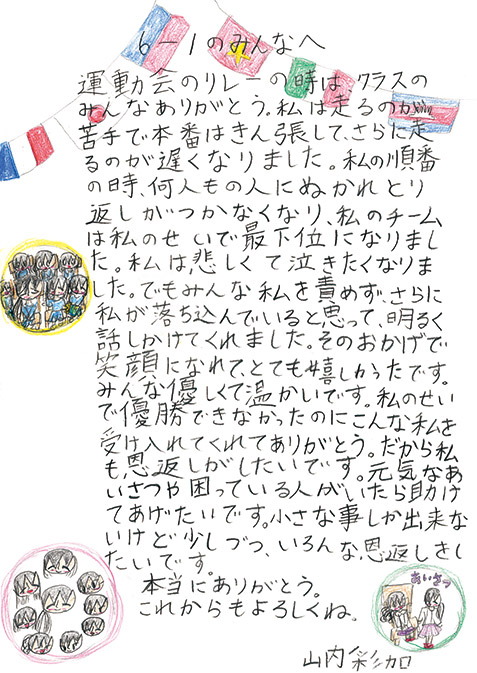 6-1のみんなへ
運動会のリレーの時は、クラスの
みんなありがとう。私は走るのが
苦手で本番はきん張して、さらに走
るのが遅くなりました。私の順番
の時、何人もの人にぬかれとり
返しがつかなくなり、私のチーム
は私のせいで最下位になりまし
た。私は、悲しくて泣きたくなりま
した。でもみんな私を責めず、さらに
私が落ち込んでいると思って、明るく
話しかけてくれました。そのおかげで
笑顔になれて、とても嬉しかったです。
みんな優しくて温かいです。私のせい
で優勝できなかったのにこんな私を
受け入れてくれてありがとう。だから私
も、恩返しがしたいです。元気なあ
いさつや困っている人がいたら助け
てあげたいです。小さな事しか出来な
いけど少しづつ、いろんな恩返しをし
たいです。
本当にありがとう。
これからもよろしくね。
あいさつ
山内彩加